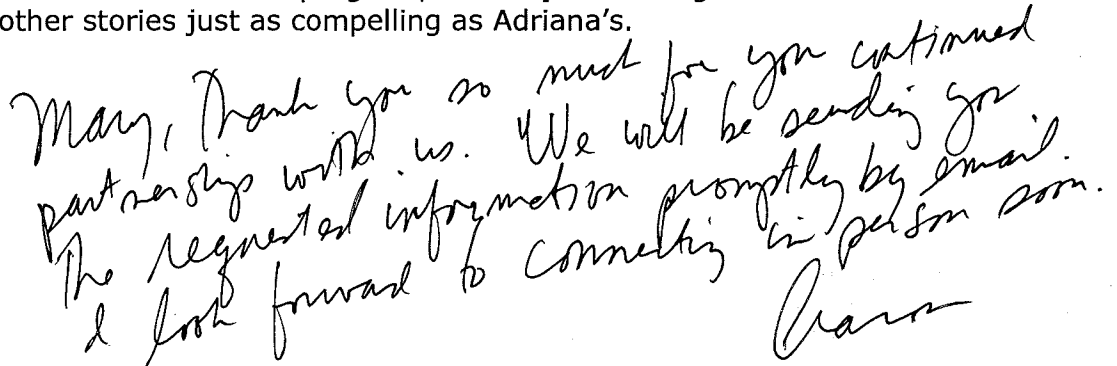 other stories just as compelling as Adriana's.
Mary, Thank you so much for you continued
partnership with us. We will be sending you
the requested information promptly by email.
I look forward to connecting in person soon.
Aaron